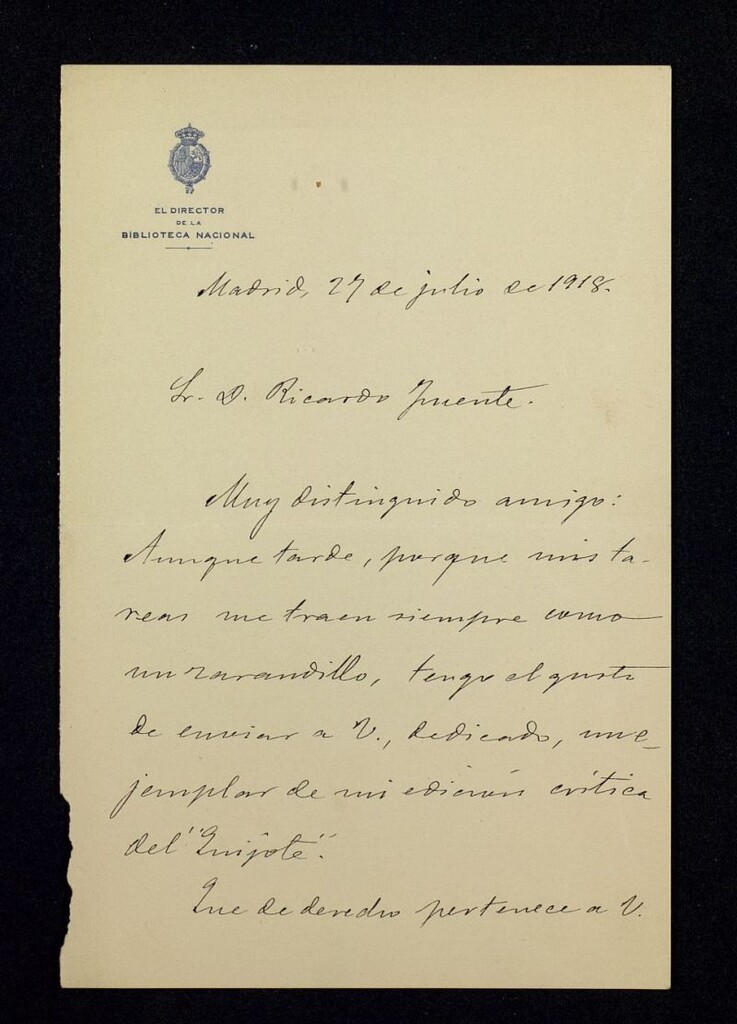 EL DIRECTOR
DE LA
BIBLIOTECA NACIONAL
Madrid, 27 de julio de 1918.
Sr. D. Ricardo Fuente.
Muy distinguido amigo:
Aunque tarde, porque mis ta-
reas me traen siempre como
un zarandillo, tengo el gusto
de enviar a V., dedicado, un e-
jemplar de mi edición crítica
del "Quijote".
Que de derecho pertenece a V.